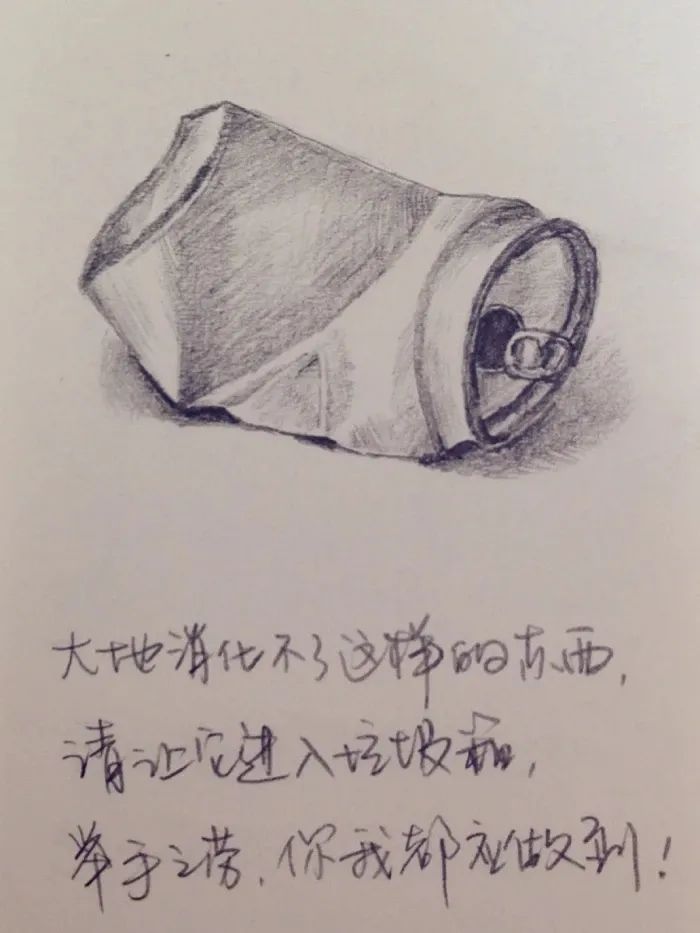 大地消化不了这样的东西,
请让它进入垃圾箱,
举手之劳,你我都应做到!